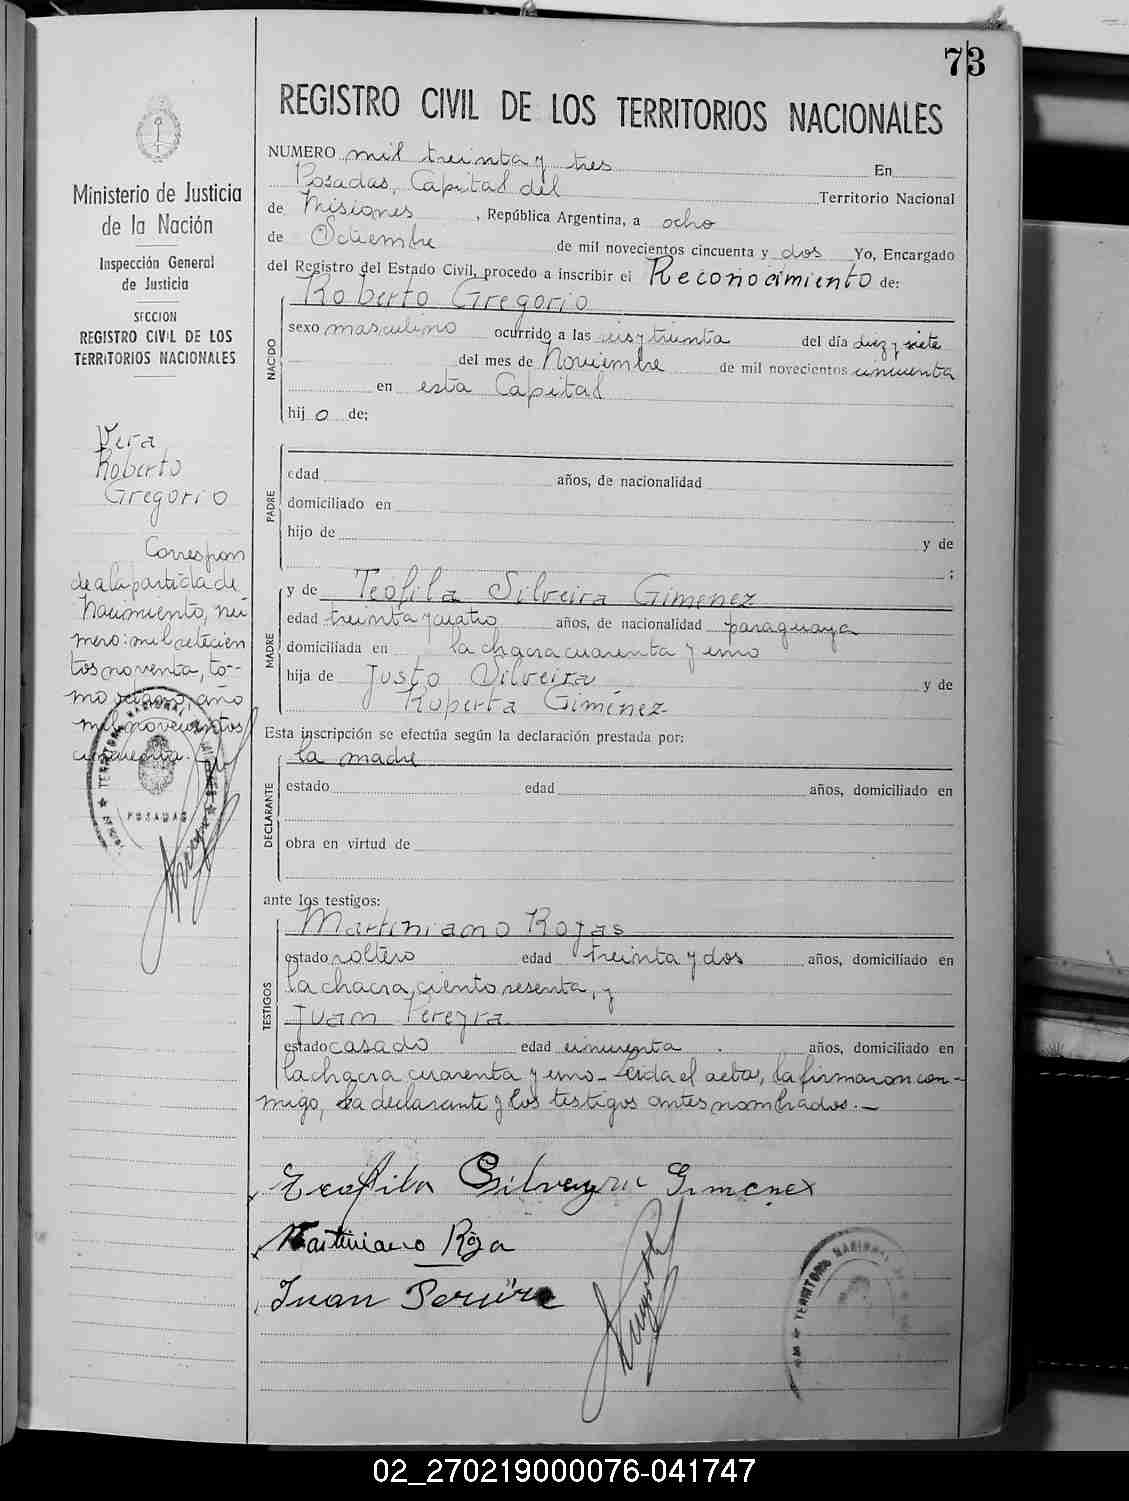 73
REGISTRO CIVIL DE LOS TERRITORIOS NACIONALES
Ministerio de Justicia
de la Nación
Inspección General
de Justicia
SECCION
REGISTRO CIVIL DE LOS
TERRITORIOS NACIONALES
Vera
Roberto
Gregorio
Correspon
de a la partida de
Nacimiento, nú
mero: mil setecien
tos noventa, to--
mo año
mil novecientos
cincuenta.
POSADAS
NUMERO mil treinta y tres En
Posadas, Capital del Territorio Nacional
de Misiones , República Argentina, a ocho
de Setiembre de mil novecientos cincuenta y dos Yo, Encargado
del Registro del Estado Civil, procedo a inscribir el Reconocimiento de:
Roberto Gregorio
NACIDO
sexo masculino ocurrido a las seis y treinta del día diez y siete
del mes de Noviembre de mil novecientos cincuenta
en esta Capital
hij o de:
PADRE
edad años, de nacionalidad
domiciliado en
hijo de y de
;
MADRE
y de Teófila Silveira Gimenez
edad treinta y cuatro años, de nacionalidad paraguaya
domiciliada en la chacra cuarenta y uno
hija de Justo Silveira y de
Ruperta Giménez
Esta inscripción se efectúa según la declaración prestada por:
la madre
DECLARANTE
estado edad años, domiciliado en
obra en virtud de
ante los testigos:
TESTIGOS
Martiniano Rojas
estado soltero edad treinta y dos años, domiciliado en
la chacra, ciento sesenta, y
Juan Pereyra
estado casado edad cincuenta . años, domiciliado en
la chacra cuarenta y uno_ Leída el acta, la firmaron con-
migo, la declarante y los testigos antes nombrados.—
Teofila Silveyra Gimenez
Martiniano Roja
Juan
TERRITORIO NACIONAL
02_270219000076-041747